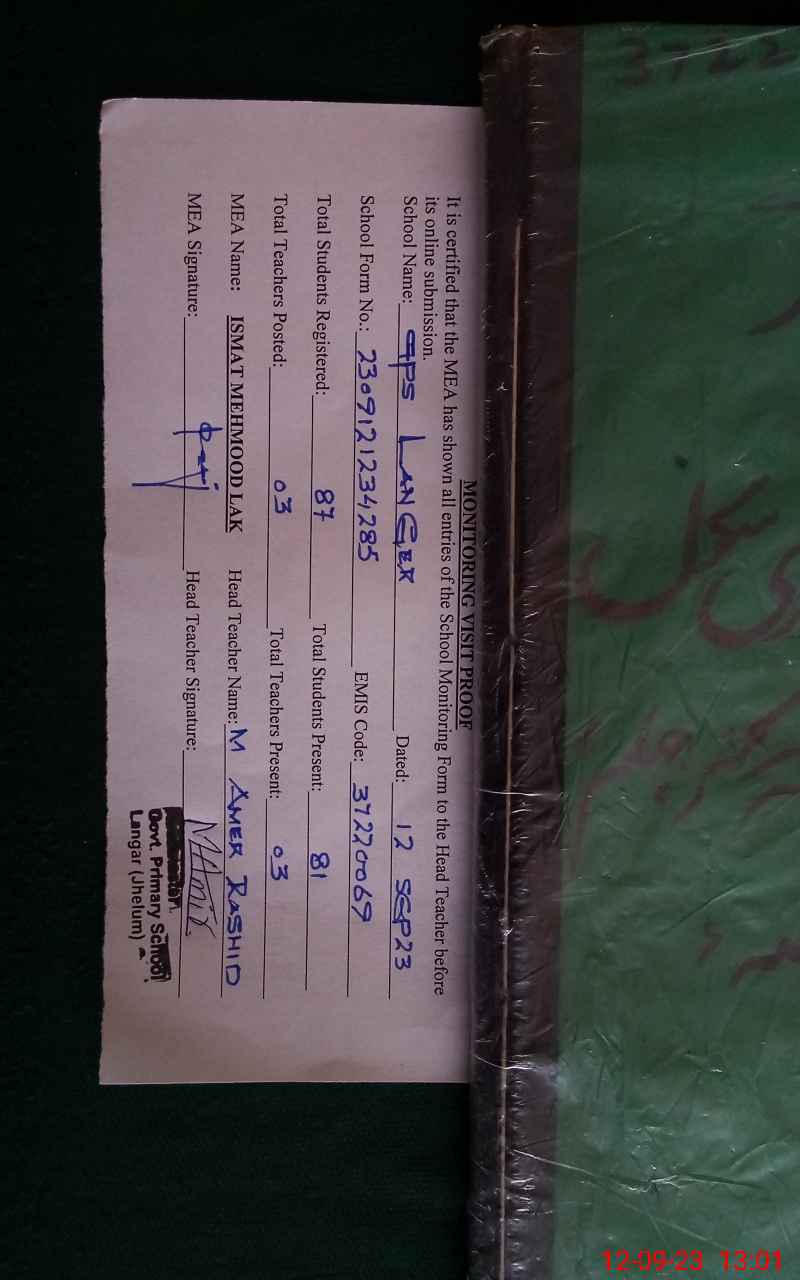 MONITORING VISIT PROOF
It is certified that the MEA has shown all entries of the School Monitoring Form to the Head Teacher before
its online submission.
School Name: GPS LANGER Dated: 12 SEP23
School Form No.: 2309121234285 EMIS Code: 37220069
Total Students Registered: 87 Total Students Present: 81
Total Teachers Posted: 03 Total Teachers Present: 03
MEA Name: ISMAT MEHMOOD LAK Head Teacher Name: M AMER RASHID
MEA Signature: Head Teacher Signature: MAmir
Govt. Primary School
Langar (Jhelum)
3722
12-09-23 13:01